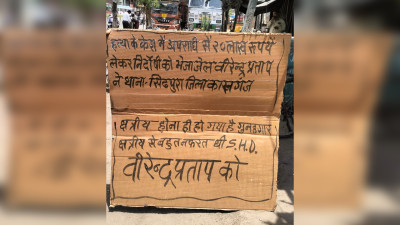 हत्या के केश में अपराधि से २० लाख रूपये
लेकर निर्दोषी को भेजा जेल वीरेन्द्र प्रताप
ने थाना- सिढपुरा जिला कासगंज
क्षत्रीय होना ही हो गया है गुनहगार
क्षत्रीय से बहुत नफरत थी S.H.O.
वीरेन्द्र प्रताप को